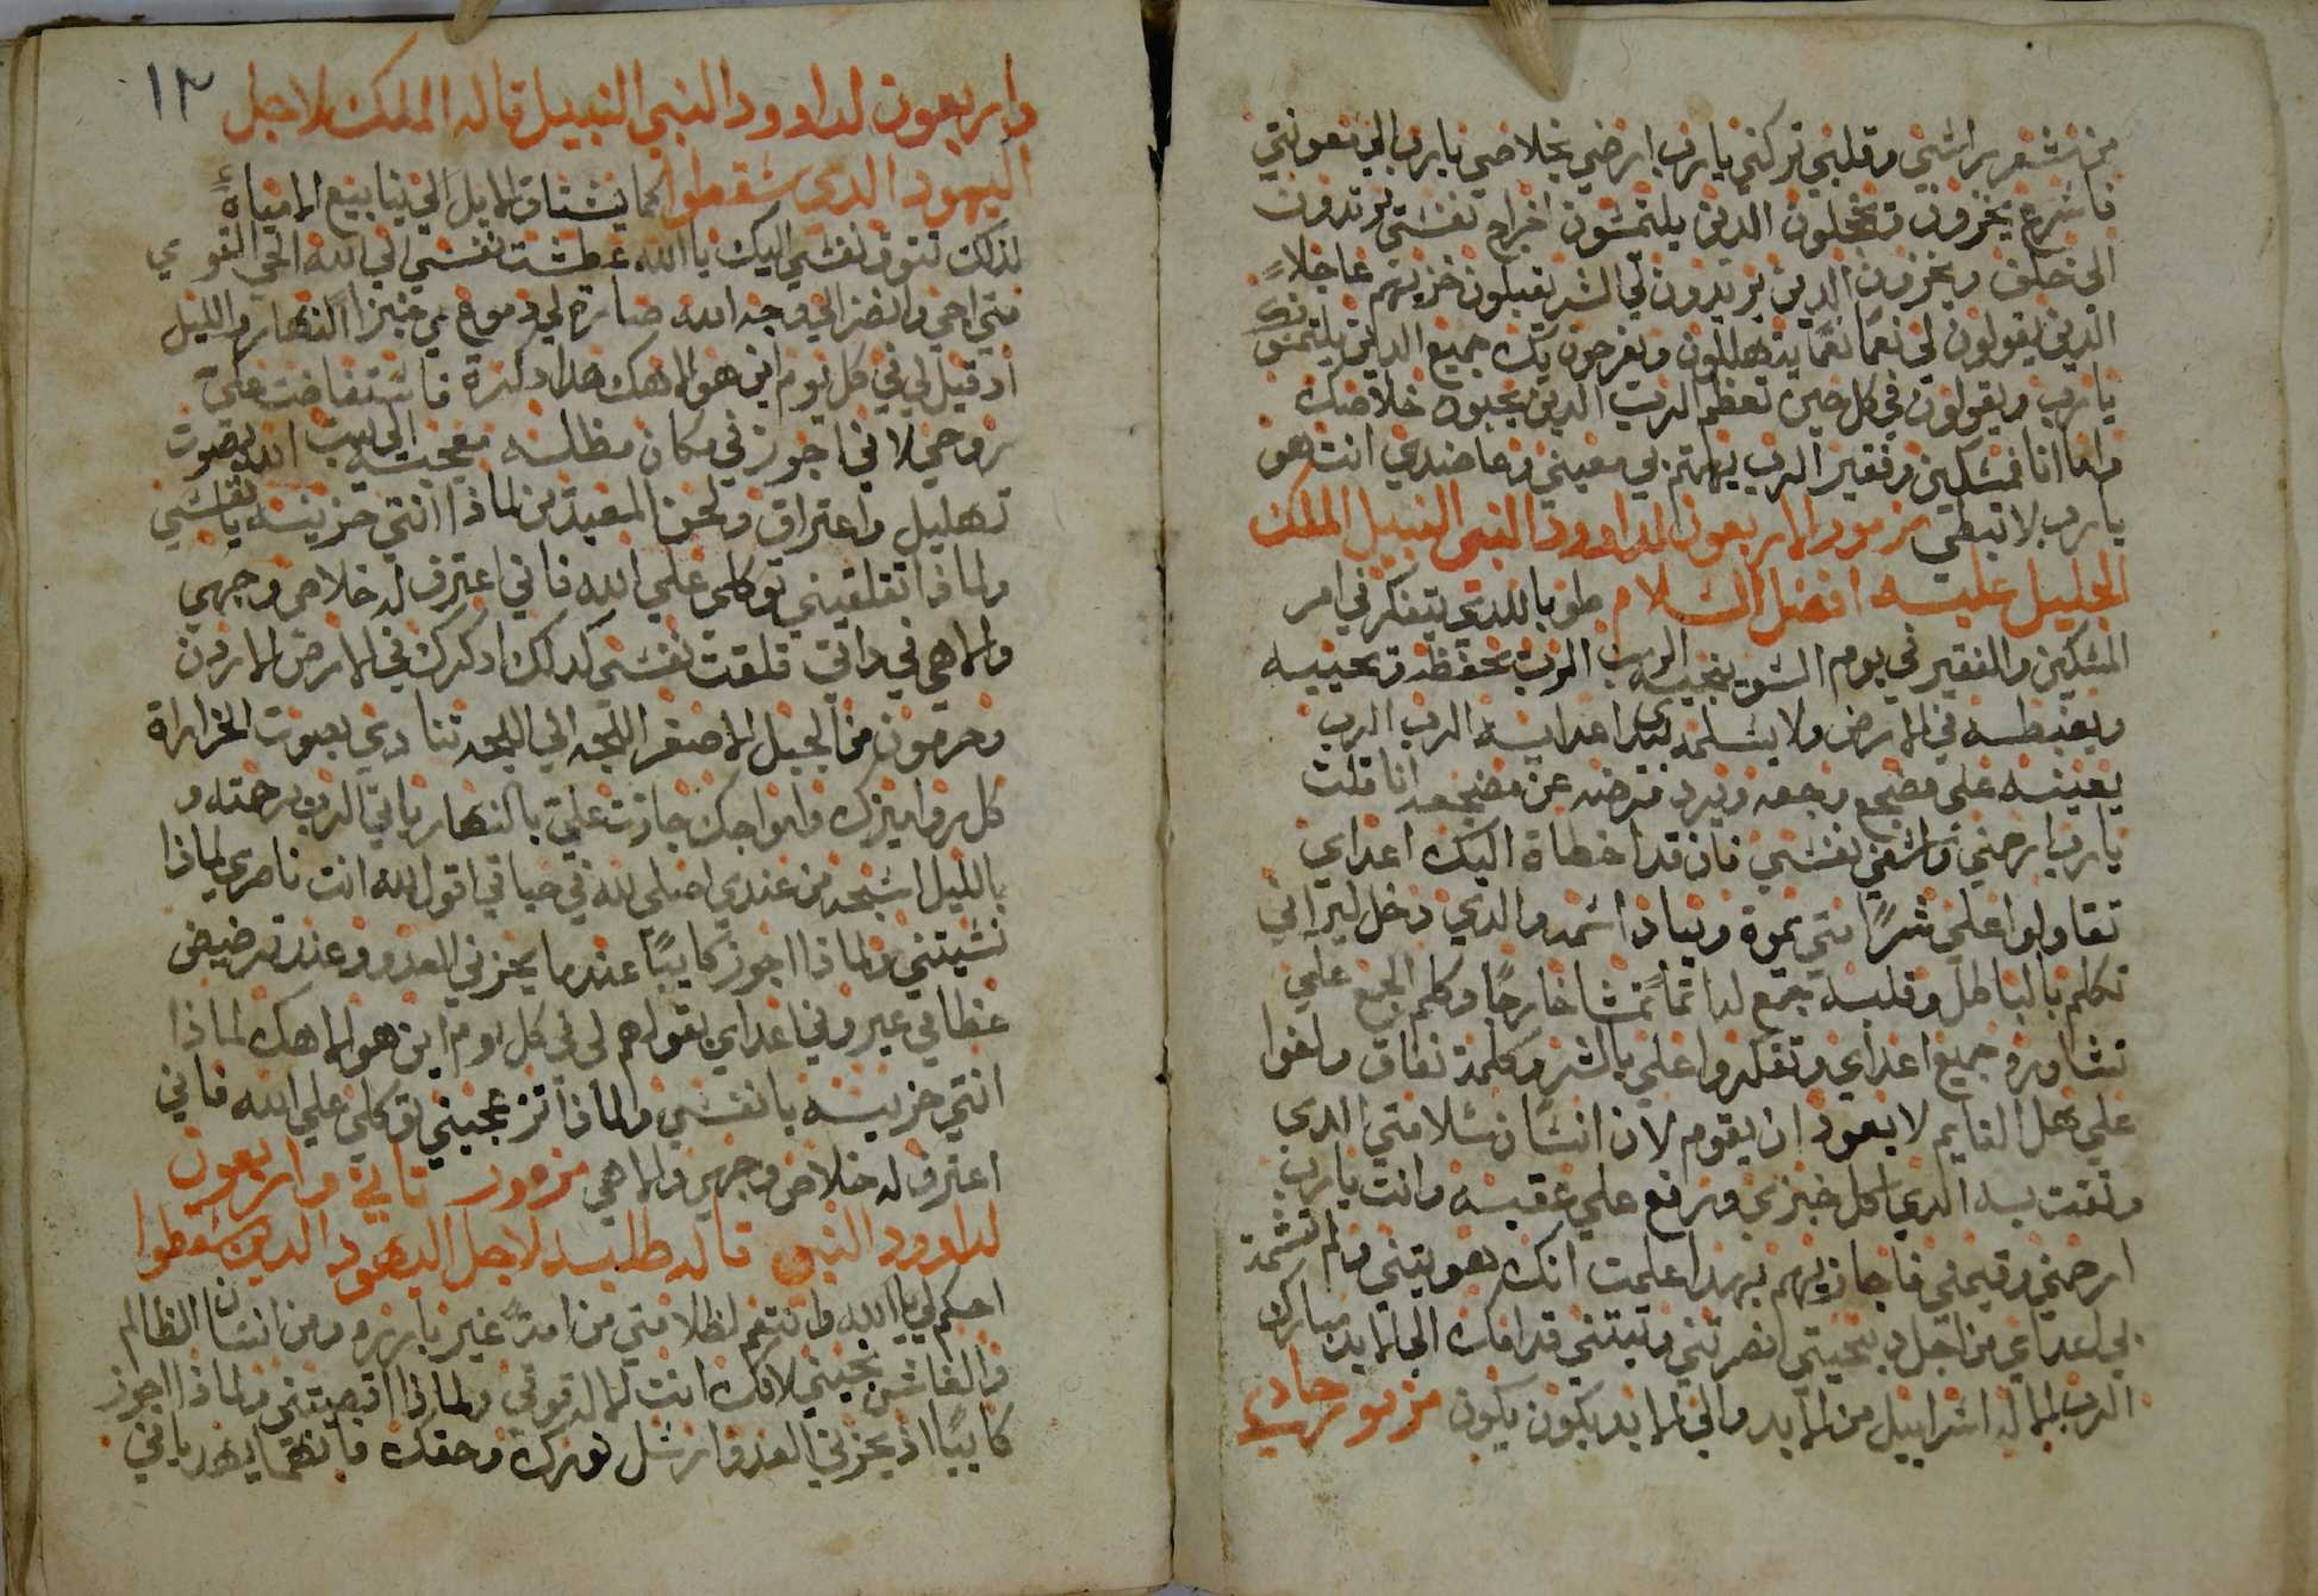 من شعر راسي وقلبي تركني يارب ارضي بخلاصي يارب الي معونتي
فاسرع يخزون ويخجلون الدين يلتمسون اخراج نفسي يرتدون
الى خلف ويخزون الدين يريدون لي الشر يقبلون خزيهم عاجلاً
الدين يقولون لي نعمًا نعمًا يتهللون ويفرحون بك جميع الدين يلتمسوك
يارب ويقولون في كل حين تعظم الرب الدين يحبون خلاصك
واما انا فمسكين وفقير الرب يهتم بي معيني وعاضدي انت هو
يارب لا تبطي مزمور الاربعون لداوود النبي النبيل الملك
الجليل عليه افضل السلام طوبا للدي يتفكر في امر
المسكين والفقير في يوم السو ينجيه الرب الرب يحفظه ويحييه
ويغبطه في الارض ولا يسلمه بيدي اعدايه الرب الرب
يعينه على مضجع وجعه ويرد مرضه عن مضجعه انا قلت
يارب ارحمني واشفي نفسي فان قد اخطاة اليك اعداي
تقاولوا علي شرًا متي يموة ويباد اسمه والدي دخل ليراني
تكلم بالباطل وقلبه جمع له اثمًا تمشا خارجًا وكلم الجمع علي
تشاوره جميع اعداي وتفكروا علي بالشر وكلمة نفاق والفوا
علي هل النايم لا يعود ان يقوم لان انسان سلامتي الدي
وثقت به الدي اكل خبزي ورفع علي عقبه وانت يارب
ارحمني وقيمني فاجازيهم بهدا علمت انك هويتني ولم تشمة
بي اعداي من اجل دعتي نصرتني وتبتني قدامك الي الابد مبارك
الرب الاله اسراييل من الابد والي الابد يكون يكون مزمور حادي
١٣
واربعون لداوود النبي النبيل قاله الملك لاجل
اليهود الدي سقطوا كما يشتاق الايل الي ينابيع المياة
لدلك تتوق نفسي اليك يا الله عطشت نفسي الي الله الحي القوي
متي اجي وانضر الي وجه الله صارة لي دموعي خبزا النهار والليل
اد قيل لي في كل يوم اين هو الاهك هدا دكرة فاستفاضت علي
روحي لاني اجوز في مكان مظله معجبه الي بيت الله بصوت
تهليل واعتراف ولحن المعيدين لماذا انتي حزينه يا نفسي
ولماذا تقلقيني توكلي علي الله فاني اعترف له خلاص وجهي
والاهي في داتي قلقت نفسي كدلك ادكرك في الارض الاردن
وحرمون من الجبل الاصغر اللجه الي اللجه تنادي بصوت الخرارة
كل روابيزك وامواجك جازت علي بالنهار ياتي الرب برحمته و
بالليل اسبحه من عندي اصلي لله في حياتي اقول لله انت ناصري لماذا
نسيتني ولماذا اجوز كايبًا عندما يحزني العدو وعند ترضيض
عظامي عيروني اعداي بقولهم لي في كل يوم اين هو الاهك لماذا
انتي حزينه يا نفسي ولماذا تزعجيني توكلي علي الله فاني
اعترف له خلاص وجهي والاهي مزمور تاني واربعون
لداوود النبي قاله طلبه لاجل اليهود الدين سقطوا
احكم لي يا الله وانتقم لظلامتي من امةً غير باره ومن انسان الظالم
والغاش نجيني لانك انت الاله قوتي ولماذا اقصيتني ولماذا اجوز
كايبًا اذ يحزني العدو ارسل نورك وحقك فانهما يهدياني